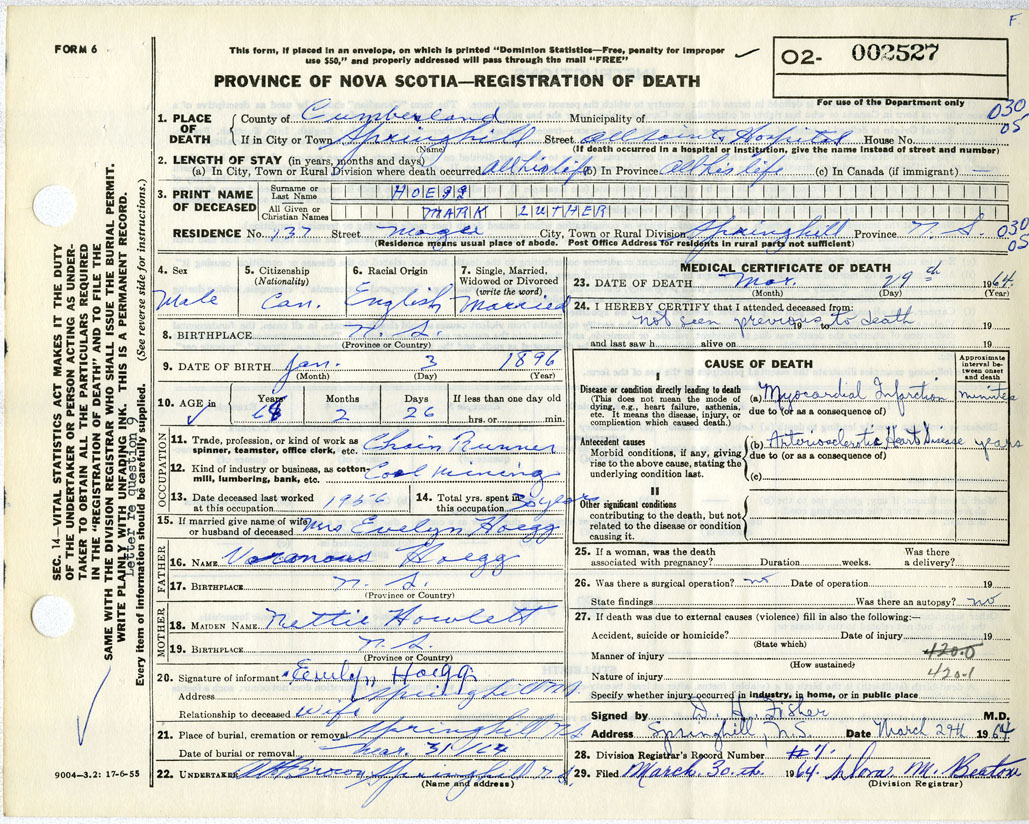 F.
FORM 6
This form, if placed in an envelope, on which is printed "Dominion Statistics—Free, penalty for improper
use $50," and properly addressed will pass through the mail "FREE"
02- 002527
PROVINCE OF NOVA SCOTIA—REGISTRATION OF DEATH
For use of the Department only
1. PLACE OF DEATH County of Cumberland Municipality of 030
If in City or Town Springhill Street All Saints Hospital House No. 05
(Name) (If death occurred in a hospital or institution, give the name instead of street and number)
2. LENGTH OF STAY (in years, months and days)
(a) In City, Town or Rural Division where death occurred all his life (b) In Province all his life (c) In Canada (if immigrant) —
3. PRINT NAME OF DECEASED
Surname or Last Name HOEGG
All Given or Christian Names MARK LUTHER
RESIDENCE No. 137 Street McGee City, Town or Rural Division Springhill Province N. S. 030
(Residence means usual place of abode. Post Office Address for residents in rural parts not sufficient) 05
4. Sex Male
5. Citizenship (Nationality) Can.
6. Racial Origin English
7. Single, Married, Widowed or Divorced (write the word) Married
8. BIRTHPLACE N. S.
(Province or Country)
9. DATE OF BIRTH Jan. 3 1896
(Month) (Day) (Year)
10. AGE in Years 68 Months 2 Days 26 If less than one day old
hrs. or min.
OCCUPATION
11. Trade, profession, or kind of work as spinner, teamster, office clerk, etc. Chain Runner
12. Kind of industry or business, as cotton-mill, lumbering, bank, etc. Coal Mining
13. Date deceased last worked at this occupation 1956
14. Total yrs. spent in this occupation 30 years
15. If married give name of wife or husband of deceased Mrs Evelyn Hoegg
FATHER
16. NAME Hoegg
17. BIRTHPLACE N. S.
(Province or Country)
MOTHER
18. MAIDEN NAME Nettie Howlett
19. BIRTHPLACE N. S.
(Province or Country)
20. Signature of informant Evelyn Hoegg
Address Springhill NS
Relationship to deceased Wife
21. Place of burial, cremation or removal Springhill N.S.
Date of burial or removal Mar. 31/64
22. UNDERTAKER Brown Springhill N.S.
(Name and address)
MEDICAL CERTIFICATE OF DEATH
23. DATE OF DEATH Mar. 29th 1964
(Month) (Day) (Year)
24. I HEREBY CERTIFY that I attended deceased from:
not seen previous to death
19 to 19
and last saw h alive on 19
CAUSE OF DEATH
Approximate interval between onset and death
I
Disease or condition directly leading to death
(This does not mean the mode of dying, e.g., heart failure, asthenia, etc. It means the disease, injury, or complication which caused death.)
(a) Myocardial Infarction minutes
due to (or as a consequence of)
Antecedent causes
Morbid conditions, if any, giving rise to the above cause, stating the underlying condition last.
(b) Arteriosclerotic Heart Disease years
due to (or as a consequence of)
(c)
II
Other significant conditions
contributing to the death, but not related to the disease or condition causing it.
25. If a woman, was the death associated with pregnancy? Duration weeks. Was there a delivery?
26. Was there a surgical operation? no Date of operation 19
State findings Was there an autopsy? no
27. If death was due to external causes (violence) fill in also the following:—
Accident, suicide or homicide? Date of injury 19
(State which)
Manner of injury 420.0
(How sustained)
Nature of injury 420.1
Specify whether injury occurred in industry, in home, or in public place
Signed by D. H. Fisher M.D.
Address Springhill, N.S. Date March 29th 1964
28. Division Registrar's Record Number #7
29. Filed March 30th 1964 M. Beaton
(Division Registrar)
SEC. 14—VITAL STATISTICS ACT MAKES IT THE DUTY
OF THE UNDERTAKER OR PERSON ACTING AS UNDER-
TAKER TO OBTAIN ALL THE PARTICULARS REQUIRED
IN THE "REGISTRATION OF DEATH" AND TO FILE THE
SAME WITH THE DIVISION REGISTRAR WHO SHALL ISSUE THE BURIAL PERMIT.
WRITE PLAINLY WITH UNFADING INK. THIS IS A PERMANENT RECORD.
Letter re question 9
Every item of information should be carefully supplied. (See reverse side for instructions.)
9004—3.2: 17-6-55